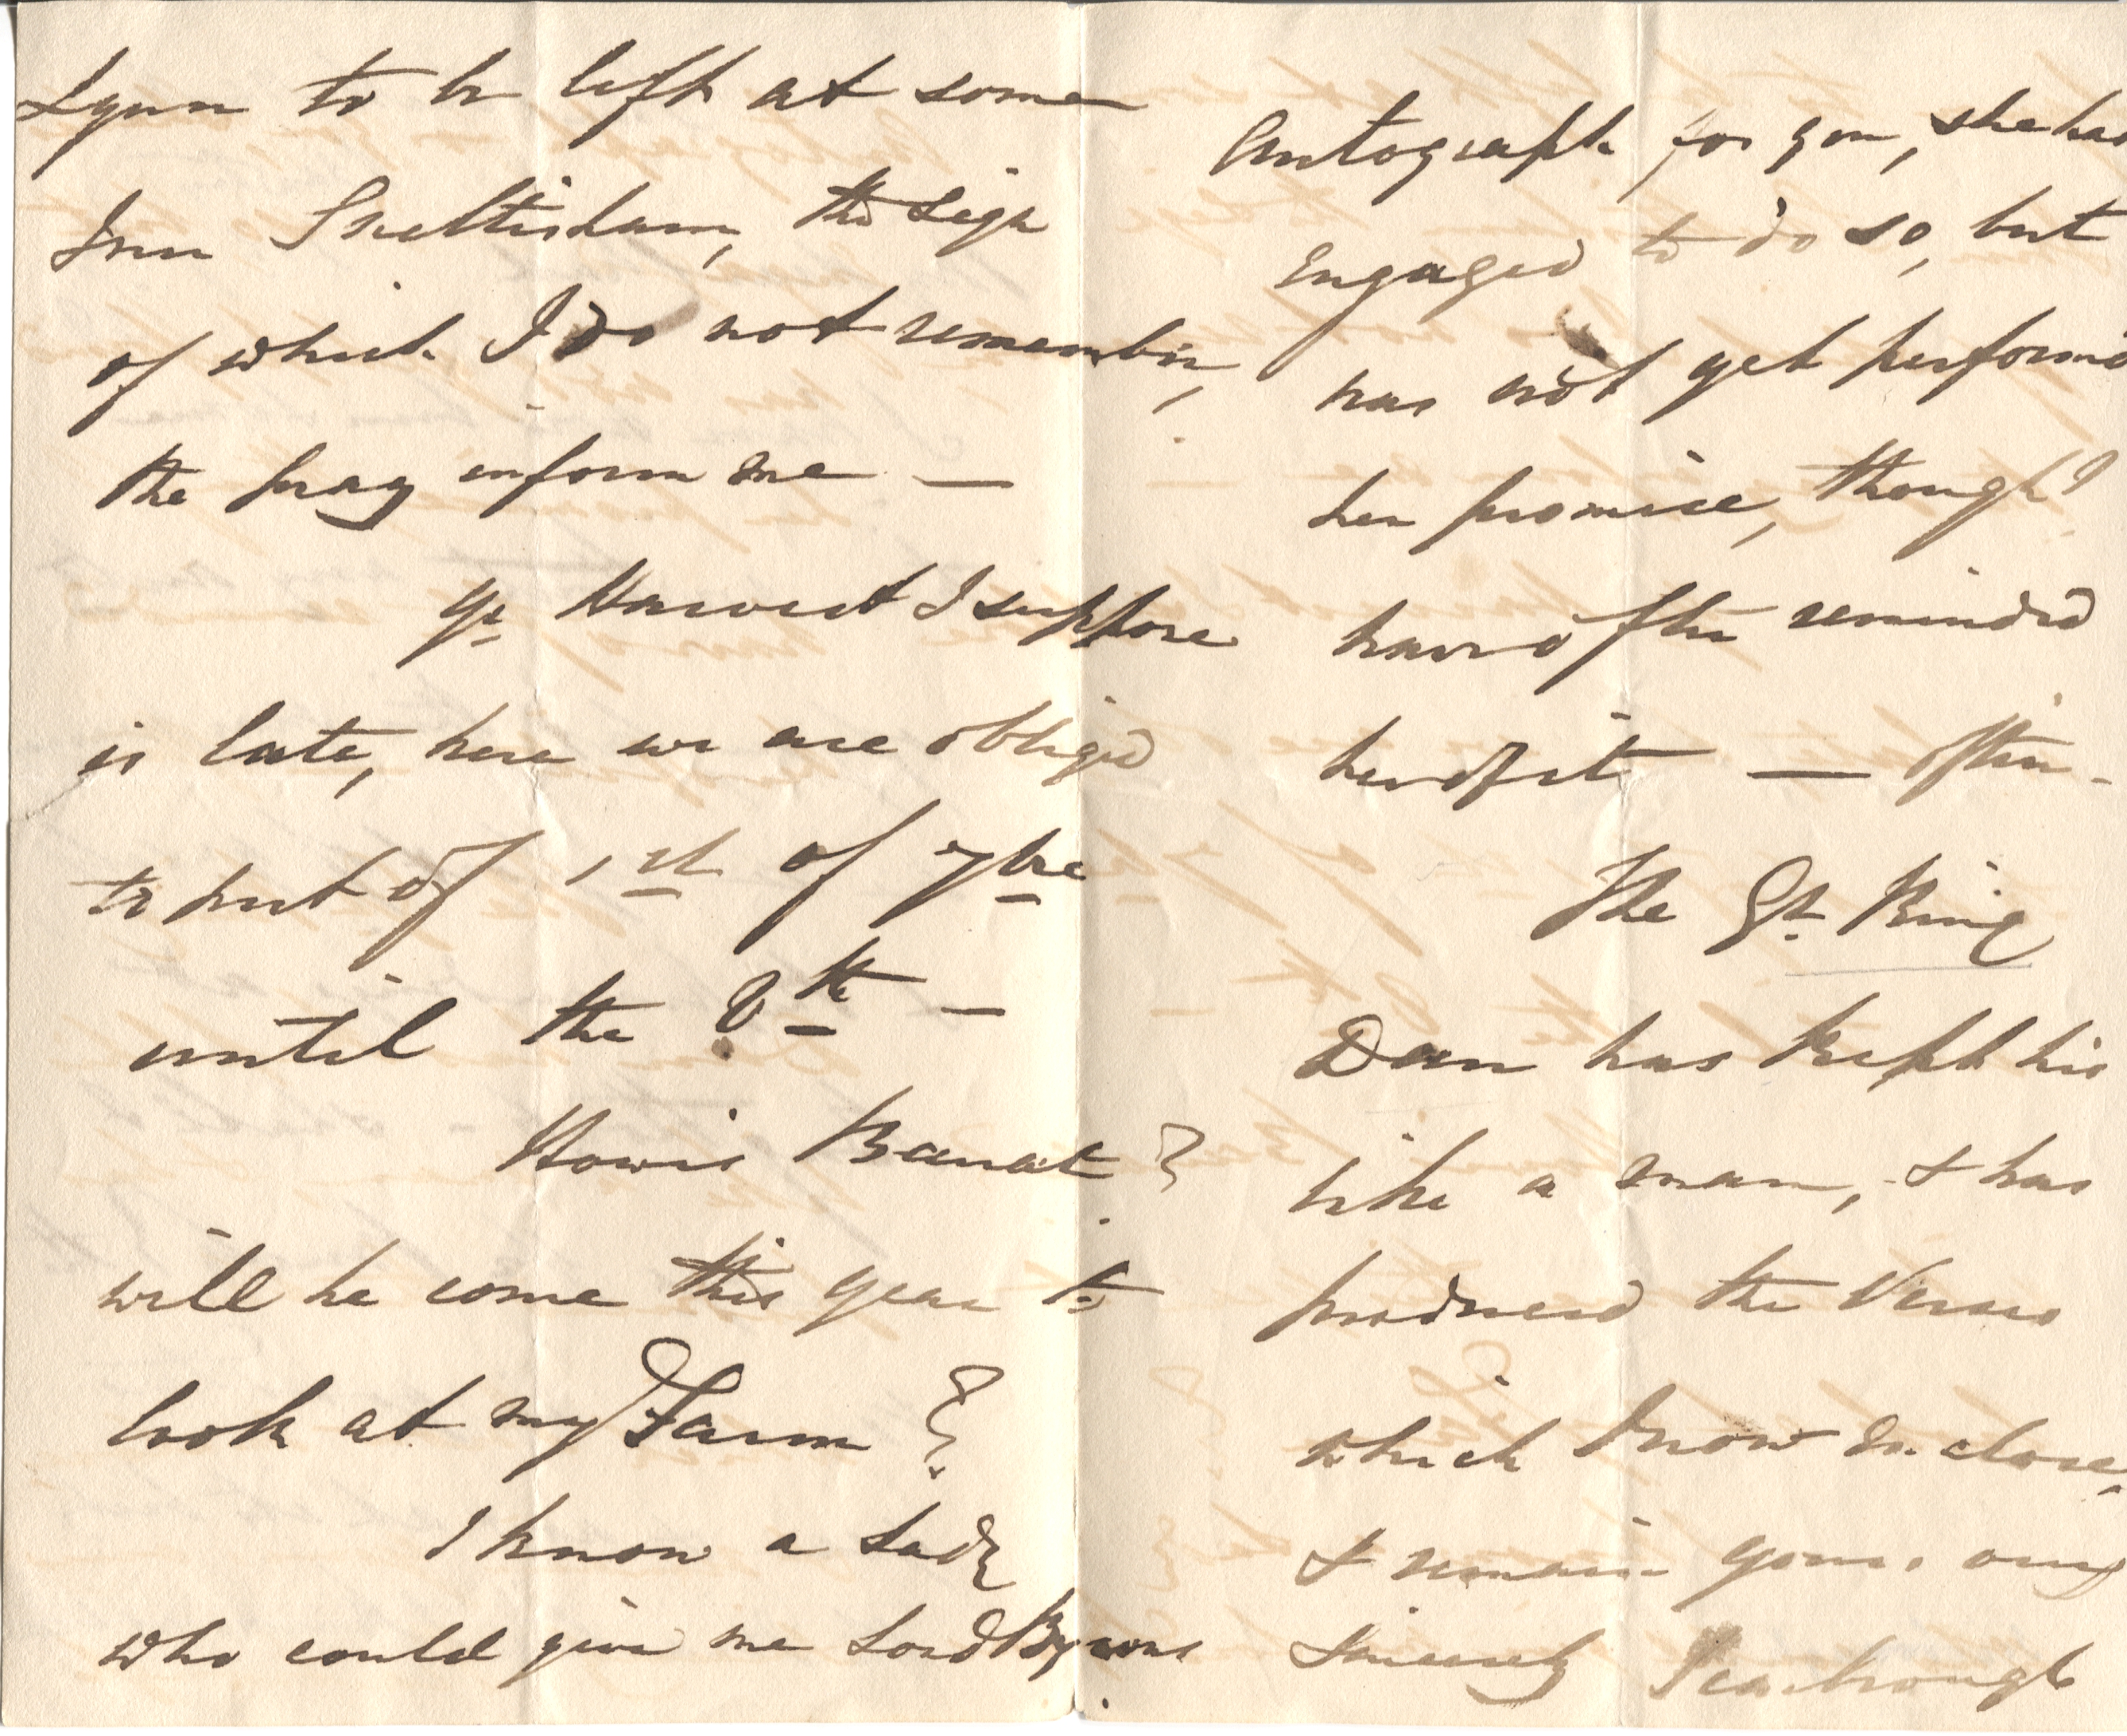 Lynn to be left at some
Inn Snettisham, the sign
of which I do not remember,
the pray inform me —
Yr Harvest I suppose
is late, here we are obliged
to put of 1st of 7bre
until the 8th —
How is Banat?
will he come this year to
look at my Farm?
I know a Lady
who could give me Lord Byrons
Autograph for you, she has
engaged to do so, but
has not yet performd
her promise, though I
have often reminded
her of it — often -
The Gt. King
Dean has kept his
like a man, & has
produced the Verses
which I now enclose,
& remain yours very
sincerely Scarbrough